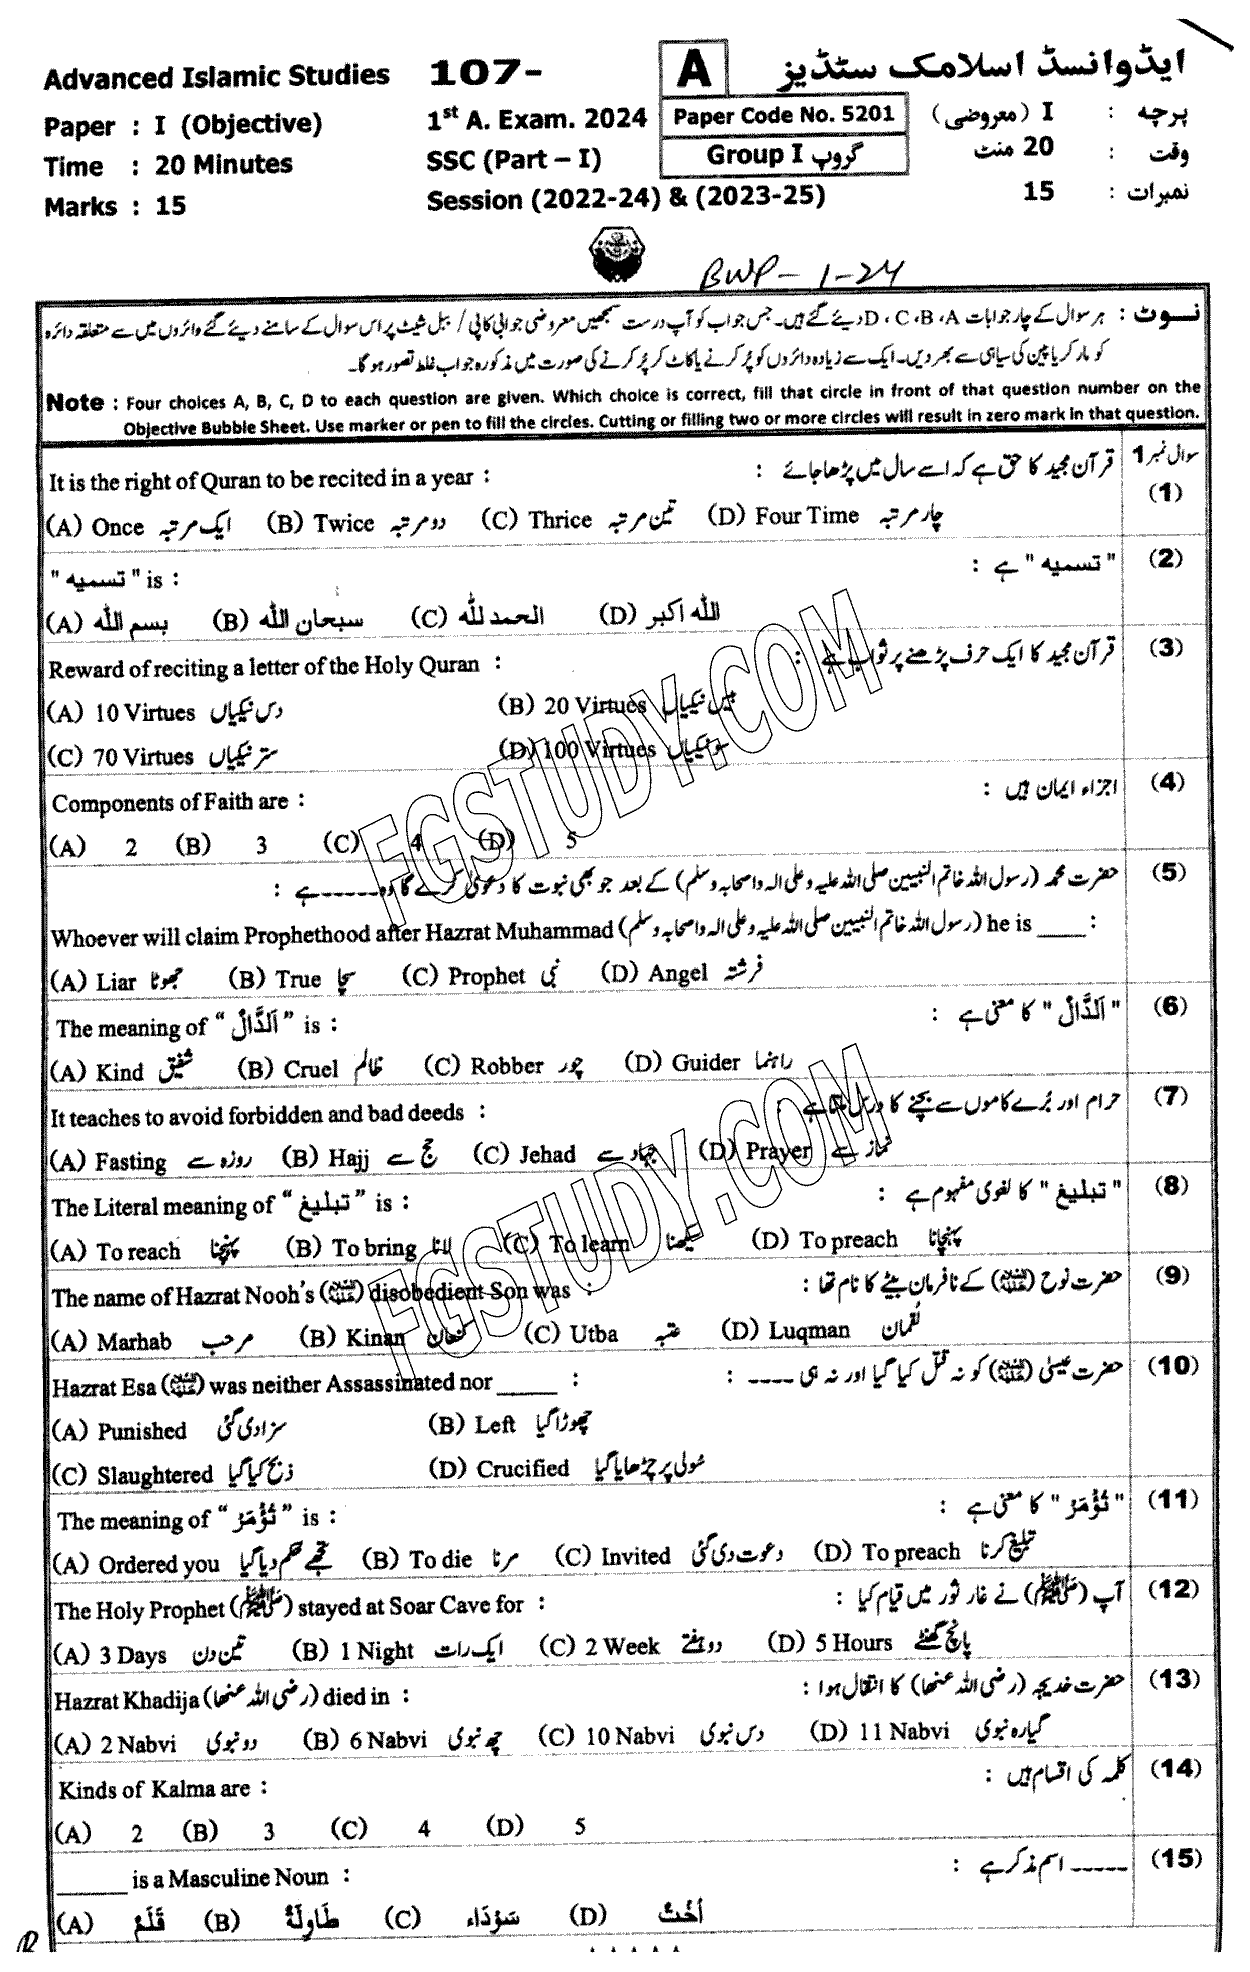 Advanced Islamic Studies 107- A ایڈوانسڈ اسلامک سٹڈیز
Paper : I (Objective) 1st A. Exam. 2024 Paper Code No. 5201 پرچہ : I (معروضی)
Time : 20 Minutes SSC (Part – I) Group I گروپ وقت : 20 منٹ
Marks : 15 Session (2022-24) & (2023-25) نمبرات : 15
BWP-1-24
نوٹ : ہر سوال کے چار جوابات D ، C ، B ، A دیئے گئے ہیں۔ جس جواب کو آپ درست سمجھیں معروضی جوابی کاپی / ببل شیٹ پر اس سوال کے سامنے دیئے گئے دائروں میں سے متعلقہ دائرہ
کو مارکر یا پین کی سیاہی سے بھر دیں۔ ایک سے زیادہ دائروں کو پُر کرنے یا کاٹ کر پُر کرنے کی صورت میں مذکورہ جواب غلط تصور ہو گا۔
Note : Four choices A, B, C, D to each question are given. Which choice is correct, fill that circle in front of that question number on the
Objective Bubble Sheet. Use marker or pen to fill the circles. Cutting or filling two or more circles will result in zero mark in that question.
سوال نمبر 1
(1) قرآن مجید کا حق ہے کہ اسے سال میں پڑھا جائے :
It is the right of Quran to be recited in a year :
(A) Once ایک مرتبہ (B) Twice دو مرتبہ (C) Thrice تین مرتبہ (D) Four Time چار مرتبہ
(2) "تسمیہ" ہے :
"تسمیہ" is :
(A) بسم اللہ (B) سبحان اللہ (C) الحمد للہ (D) اللہ اکبر
(3) قرآن مجید کا ایک حرف پڑھنے پر ثواب ہے :
Reward of reciting a letter of the Holy Quran :
(A) 10 Virtues دس نیکیاں (B) 20 Virtues بیس نیکیاں
(C) 70 Virtues ستر نیکیاں (D) 100 Virtues سو نیکیاں
(4) اجزاء ایمان ہیں :
Components of Faith are :
(A) 2 (B) 3 (C) 4 (D) 5
(5) حضرت محمد (رسول اللہ خاتم النبیین صلی اللہ علیہ وعلی الہ واصحابہ وسلم) کے بعد جو بھی نبوت کا دعویٰ کرے گا وہ ۔۔۔۔۔ ہے :
Whoever will claim Prophethood after Hazrat Muhammad (رسول اللہ خاتم النبیین صلی اللہ علیہ وعلی الہ واصحابہ وسلم) he is ____ :
(A) Liar جھوٹا (B) True سچا (C) Prophet نبی (D) Angel فرشتہ
(6) "اَلدَّالُّ" کا معنی ہے :
The meaning of "اَلدَّالُّ" is :
(A) Kind شفیق (B) Cruel ظالم (C) Robber چور (D) Guider راہنما
(7) حرام اور بُرے کاموں سے بچنے کا درس ملتا ہے :
It teaches to avoid forbidden and bad deeds :
(A) Fasting روزہ سے (B) Hajj حج سے (C) Jehad جہاد سے (D) Prayer نماز سے
(8) "تبلیغ" کا لغوی مفہوم ہے :
The Literal meaning of "تبلیغ" is :
(A) To reach پہنچنا (B) To bring لانا (C) To learn سیکھنا (D) To preach پہنچانا
(9) حضرت نوح (علیہ السلام) کے نافرمان بیٹے کا نام تھا :
The name of Hazrat Nooh's (علیہ السلام) disobedient Son was :
(A) Marhab مرحب (B) Kinan کنعان (C) Utba عتبہ (D) Luqman لقمان
(10) حضرت عیسیٰ (علیہ السلام) کو نہ قتل کیا گیا اور نہ ہی ۔۔۔۔ :
Hazrat Esa (علیہ السلام) was neither Assassinated nor _____ :
(A) Punished سزا دی گئی (B) Left چھوڑا گیا
(C) Slaughtered ذبح کیا گیا (D) Crucified سُولی پر چڑھایا گیا
(11) "تُؤْمَرُ" کا معنی ہے :
The meaning of "تُؤْمَرُ" is :
(A) Ordered you تجھے حکم دیا گیا (B) To die مرنا (C) Invited دعوت دی گئی (D) To preach تبلیغ کرنا
(12) آپ (ﷺ) نے غار ثور میں قیام کیا :
The Holy Prophet (ﷺ) stayed at Soar Cave for :
(A) 3 Days تین دن (B) 1 Night ایک رات (C) 2 Week دو ہفتے (D) 5 Hours پانچ گھنٹے
(13) حضرت خدیجہ (رضی اللہ عنھا) کا انتقال ہوا :
Hazrat Khadija (رضی اللہ عنھا) died in :
(A) 2 Nabvi دو نبوی (B) 6 Nabvi چھ نبوی (C) 10 Nabvi دس نبوی (D) 11 Nabvi گیارہ نبوی
(14) کلمہ کی اقسام ہیں :
Kinds of Kalma are :
(A) 2 (B) 3 (C) 4 (D) 5
(15) ۔۔۔۔۔ اسم مذکر ہے :
_____ is a Masculine Noun :
(A) قَلَمٌ (B) طَاوِلَةٌ (C) سَوْدَاء (D) اُخْتٌ
FGSTUDY.COM
FGSTUDY.COM